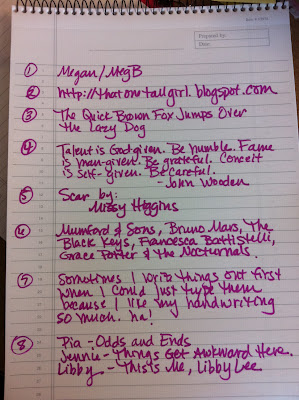 Prepared by:
Date:
1 Megan/MegB
2 http://thatonetallgirl.blogspot.com
3 The Quick Brown Fox Jumps Over
the Lazy Dog
4 Talent is God given. Be humble. Fame
is man-given. Be grateful. Conceit
is self-given. Be careful.
- John Wooden
5 Scar by:
Missy Higgins
6 Mumford & Sons, Bruno Mars, The
Black Keys, Francesca Battistelli,
Grace Potter & The Nocturnals.
7 Sometimes I write things out first
when I could just type them
because I like my handwriting
so much. ha!
8 Pia - Odds and Ends
Jennie - Things Get Awkward Here.
Libby - This is Me, Libby Lee